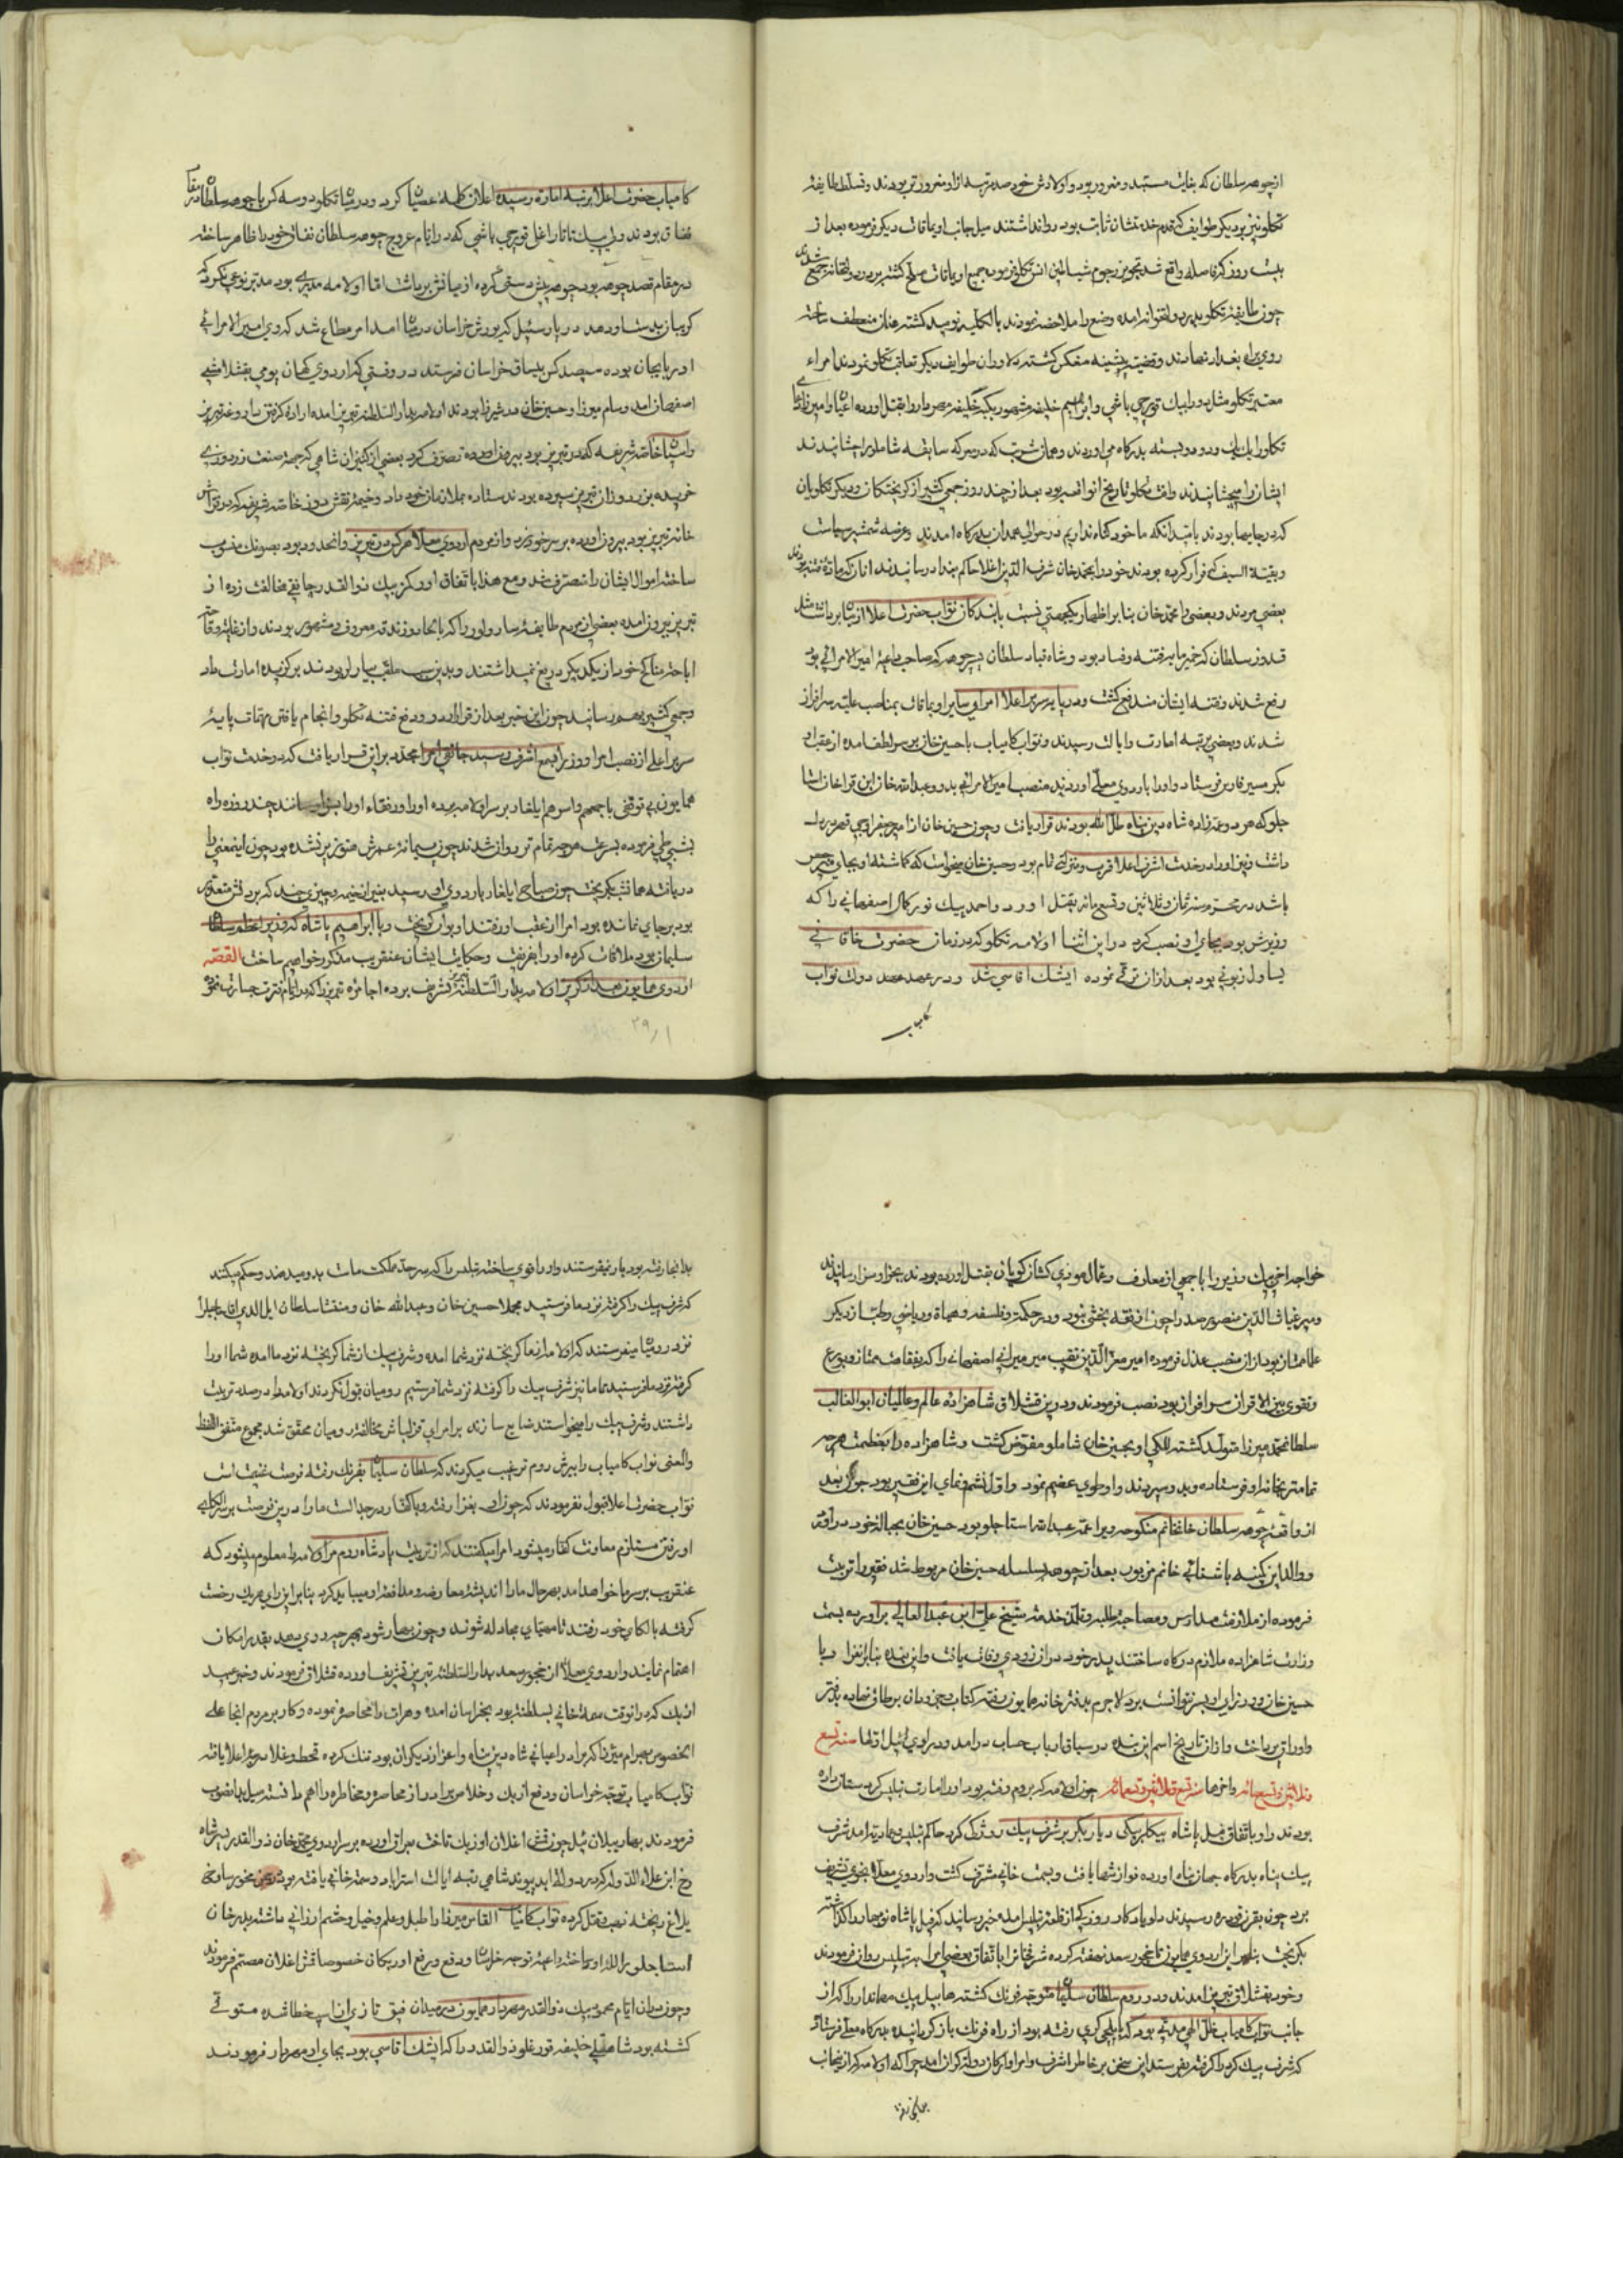 ازچوهه سلطان که بغایت مستبد و مغرور بود و اولادش خود صد مرتبه ازاو مغرورتر بودند و تسلط طایفهٔ
تکلو نیز بردیکر طوایف که قدم خدمتشان ثابت بود روا نداشتند میل جانب اویماقات دیکر فرموده بعد از
بیست روز که فاصله واقع شد تجویز رجوم شیاطین انس تکلو فرموده جمیع اویماقات مسلح کشته بر در دولتخانه جمع شدند
چون طایفهٔ تکلو بدر دولتخوانه امده وضع را ملاحضه نمودند بالکلیه نومید کشته عنان منعطف ساخته
روی براه بغداد نهادند و قضیهٔ پیشینه منعکس کشته دلاوران طوایف دیکر تعاقب تکلو نمودند امراء
معتبر تکلو مثل دورابیک قورچی باشی و ابراهیم خلیفه مشهور بیکه خلیفه مهردار را بقتل اورده اعیان و امیرزادهای
تکلو را یک یک و دو دو بسته بدرکاه می اوردند و همان شربت که در معرکه سابقه شاملو را چشانیدند
ایشان را میچشانیدند وافت تکلو تاریخ انواقعه بود بعد از چند روز جمعی کثیر از کریختکان و دیکر تکلویان
که در جایها بودند بامید انکه ما خود کناه نداریم در حوالی همدان بدرکاه امدند و عرضه شمشیر سیاست
و بقیة السیف که فرار کرده بودند خود را بمحمد خان شرف الدین اغلا حاکم بغداد رسانیدند انان که مادهٔ فتنه بودند
بعضی مردند و بعضی را محمد خان بنابر اظهار یکجهتی نسبت بابندکان نواب حضرت اعلا از میان برداشت مثل
قدوز سلطان که خمیر مایه فتنه و فساد بود و شاه قباد سلطان پسر چوهه که صاحب داعیهٔ امیر الامرائی بود
رفع شدند و فتنه ایشان مندفع کشت و در پایه سریر اعلا امرای سایر اویماقات بمناصب علیه سرافراز
شدند و بعضی برتبه امارت و ایالت رسیدند و نواب کامیاب باحسین خان بر سر الطف امده از عقب او
بکر مسیر فارس فرستاد و او را باردوی معلّی اوردند منصب امیر الامرائی بدو و عبد الله خان ابن قراخان استا
جلو که هر دو عمه زاده شاه دین پناه ظل الله بودند قرار یافت و چون حسین خان از امیر جعفر اوجی قهر در دل
داشت و نیز او را در خدمت اشرف اعلا قرب و منزلتی تمام بود و حسین خان میخواست که کماشته او بجای میر جعفر
باشد در محرم سنه ثمان و ثلاثین و تسعمائه بقتل اورد و احمد بیک نور کمال اصفهانی را که
وزیرش بود بجای او نصب کرد در این اثنا اولامه تکلو که در زمان حضرت خاقانی
یساول زبونی بود بعد ازان ترقی نموده ایشک اقاسی شد و در عهد دولت نواب
کامیاب
کامیاب حضرت اعلا برتبه امارة رسیده اعلان کلمهٔ عصیان کرد و در میان تکلو دو سه کس باچوهه سلطان در مقام
نفاق بودند دلو بیک تاتار اغلی قورچی باشی که در ایام عروج چوهه سلطان نفاق خود را ظاهر ساخته
در مقام قصد چوهه بود چوهه پیش دستی کرده از میانش برداشت اما اولامه مدبری بود مدتر نوعی نکرد که
کریبان بدست او دهد در پارس ئیل که یورش خراسان در میان امد امر مطاع شد که وی امیر الامرائی
اذربایجان بوده سیصد کس بیساق خراسان فرستد در وقتی که اردوی کیهان پوی بقشلامشی
اصفهان امد و سام میرزا و حسین خان در شیراز بودند اولامه بدار السلطنه تبریز امده اراده کرفتن داروغه تبریز
و اسباب خاصه شریفه که در تبریز بود بیرون اورده تصرف کرد بعضی از کنیزان شاهی که جهة صنعت زردوزی
خریده بزردوزان تبریز سپرده بودند ستاده بملازمان خود داد و خیمهٔ نقش دوز خاصه شریفه که در فراش
خانه تبریز بود بیرون اورده بر سر خود زد و از مردم اردوی معلا هر که در تبریز و انحدود بود بصونک منسوب
ساخته اموال ایشان را متصرف شد و مع هذا باتفاق اورکز بیک ذوالقدر چانقی مخالفت زده از
تبریز بیرون امده بعضی از مردم طایفهٔ سارولو را که بالحاد و زندقه معروف و مشهور بودند و از غایت وقاحت
اباحت مناکح خود از یکدیکر دریغ نمیداشتند و بدین سبب ملقب بسارلو بودند برکزیده امارت داد
و جمعی کثیر بهم رسانید چون این خبر بعد از قرار اردو و دفع فتنه تکلو و انجام یافتن مهمات پایهٔ
سریر اعلی از نصب امرا و وزرا بسمع اشرف رسید جانقی امرا مجدد براین قرار یافت که در خدمت نواب
همایون بی توقفی باجمعهم و اسرهم ایلغار بر سر اولامه برده او را و رفقاء او را بسزا رسانند چند روزه راه
بشبی طی فرموده بسرعت هرچه تمام تر روان شدند چون پیمانهٔ عمرش هنوز پر نشده بود چون اینمعنی را
دریافته همان شب بکریخت چون صباح ایلغار باردوی او رسید بغیر از خیمه و چیزی چند که بردنش متعذر
بود برجای نمانده بود امرا از عقب او رفتند او بوان کریخت و با ابراهیم پاشاه که وزیر اعظم سلطان
سلیمان بود ملاقات کرده او را بفریفت و حکایات ایشان عنقریب مذکور خواهم ساخت القصه
اردوی همایون بعد از کریز اولامه بدار السلطنه تبریز تشریف برده اجامرهٔ تبریز را که در ایام فترت جسارت نموده
۲۹۱
خواجه اخی بیک وزیر را باجمعی از معارف و عمال موذی کشان کویان بقتل اورده بودند بجزا و سزا رسانیدند
و میر غیاث الدین منصور صدر را چون از فقه بخشی نبود و در حکمة و فلسفه و هیأة و ریاضی و طب از دیکر
علما ممتاز بود ازان منصب عزل فرموده امیر معز الدین نقیب میر میرانی اصفهانی را که بفقاهت ممتاز و بورع
و تقوی بین الاقران سرافراز بود نصب فرمودند و درین قشلاق شاهزاده عالم و عالمیان ابو الغالب
سلطان محمد میرزا متولد کشته للکی او بحسین خان شاملو مفوض کشت و شاهزاده را بعظمت هرچه
تمامتر بخانه او فرستاده و بدو سپردند و او طوی عظیم نمود و اول نشو و نمای این فقیر بود چون بعد
از واقعهٔ چوهه سلطان خانم منکوحه ویرا عمه عبدالله استاجلو بود حسین خان بحباله خود دراورد
و والد این کمینه باشنائی خانم مزبوره بعد از چوهه بسلسله حسین خان مربوط شد فقیر را تربیت
فرموده از ملازمت مدارس و مصاحبه طلبه و تلمذ خدمت شیخ علی ابن عبد العالی براورده بسمت
وزارت شاهزاده ملازم درکاه ساختند پدرم خود در ان زودی وفات یافت و این بنده بنابر نفرا دیا
حسین خان و وزرای او بسر نتوانست برد لاجرم بدفتر خانه همایون رفته کتاب و جزودان بر طاق نهاده بدفتر
و اوراق پرداخت و ازان تاریخ اسم این بنده در سیاق ارباب حساب درامد و در اودی ئیل اولها سنه تسع
و ثلاثین و تسعمائه و اخرها سنه اربع و ثلاثین و تسعمائه چون اولامه که بروم رفته بود او را امارت بتلیس کردستان داده
بودند و او باتفاق فیل پاشاه بیکلربیکی دیار بکر بر شرف بیک روژکی کرد حاکم بتلیس و بهادر امد شرف
بیک پناه بدرکاه جهان پناه اورده نوازشها یافت و بسمت خانی مشرف کشت و اردوی معلا بخوی تشریف
برد چون بقرنقو دره رسیدند داو یادکار روزکی از قلعهٔ بتلیس امده خبر رسانید که فیل پاشاه توپها را کذاشته
بکریخت بنابر این اردوی همایون تا نخجور سعد نهضت کرده شرفخان را باتفاق بعضی امرا به بتلیس روان فرمودند
و خود بقشلاق تبریز امدند و در روم سلطان سلیمان متوجه فرنک کشته هابیل بیک مهاندار را که از
جانب نواب کامیاب ظل الهی مدتی بود که بایلچی کری رفته بود از راه فرنک باز کردانیده بدرکاه معلی فرستاد
که شرف بیک کرد را کرفته بفرستد این سخن بر خاطر اشرف و امرا و ارکان دولت کران امد چرا که اولامه که از اینجانب
بدانجا رفته
بدانجا رفته بود باز نمیفرستند و او را قوی ساخته بتلیس را که سر حد ملکت ماست بدو میدهند و حکم میکنند
که شرف بیک را کرفته نزد ما فرستید مجملا حسین خان و عبدالله خان و منتشا سلطان ایل الدی اقای ایلچی را
نزد رومیان میفرستند که اولامه از ما کریخته نزد شما امده و شرف بیک از شما کریخته نزد ما امده شما او را
کرفته نزد ما فرستید تا ما نیز شرف بیک را کرفته نزد شما فرستیم رومیان قبول نکردند اولامه را در صدد تربیت
داشتند و شرف بیک را میخواستند ضایع سازند بر امرای قزلباش مخالفت رومیان محقق شد مجموع متفق اللفظ
والمعنی نواب کامیاب را بیرش روم ترغیب میکردند که سلطان سلیمان بفرنک رفته فرصت غنیمت است
نواب حضرت اعلا قبول نفرمودند که چون او بغزا رفته و باکفار در جدالست ما را درین فرصت بر سر الکای
او رفتن مستلزم معاونت کفار میشود امرا میکفتند که از تربیت پادشاه روم مر اولامه را معلوم میشود که
عنقریب بر سر ما خواهد امد بهرحال ما را اندیشهٔ معارضه و مدافعهٔ او میباید کرد بنابراین رای هر یک رخصت
کرفته بالکای خود رفتند تا مهیای مجادله شوند و چون بهار شود بهرچه روی دهد بقدر امکان
اهتمام نمایند و اردوی معلا از نخجور سعد بدار السلطنه تبریز تشریف اورده قشلاق فرمودند و خبر عبید
ازبک که درانوقت بمعنهٔ خانی بسلطنت بود بخراسان امده و هرات را محاصره نموده و کار بر مردم انجا علی
الخصوص بهرام میرزا که برادر اعیانی شاه دین پناه و اعز ازدیکران بود تنک کرده قحط و غلا بمرتبهٔ اعلا یافته
نواب کامیاب توجه خراسان و دفع ازبک و خلاص برادر از محاصره و مخاطره را اهم دانسته سیل بدانصوب
فرمودند بهار ییلان ئیل چون قمش اغلان اوزبک تاخت بعراق اورده بر سر اردوی محمد خان ذوالقدر پسر شاه
رخ ابن علاء الدوله که در دولت ابد پیوند شاهی رتبهٔ ایالت استراباد و سمة خانی یافته بود درین نخجور ساوخ
بلاغ ریخته نهب و قتل کرده نواب کامیاب القاس میرزا را طبل و علم و خیل و حشم ارزانی داشته بدر خان
استاجلو را لله او ساخته داعیهٔ توجه خراسان و دفع و رفع اوزبکان خصوصا قمش اغلان مصمم فرمودند
و چون دران ایام محمد بیک ذوالقدر مهردار همایون در میدان قبق تازی از اسب خطا شده متوفی
کشته بود شاهقلی خلیفه قورغلو ذوالقدر را که ایشک اقاسی بود بجای او مهردار فرمودند